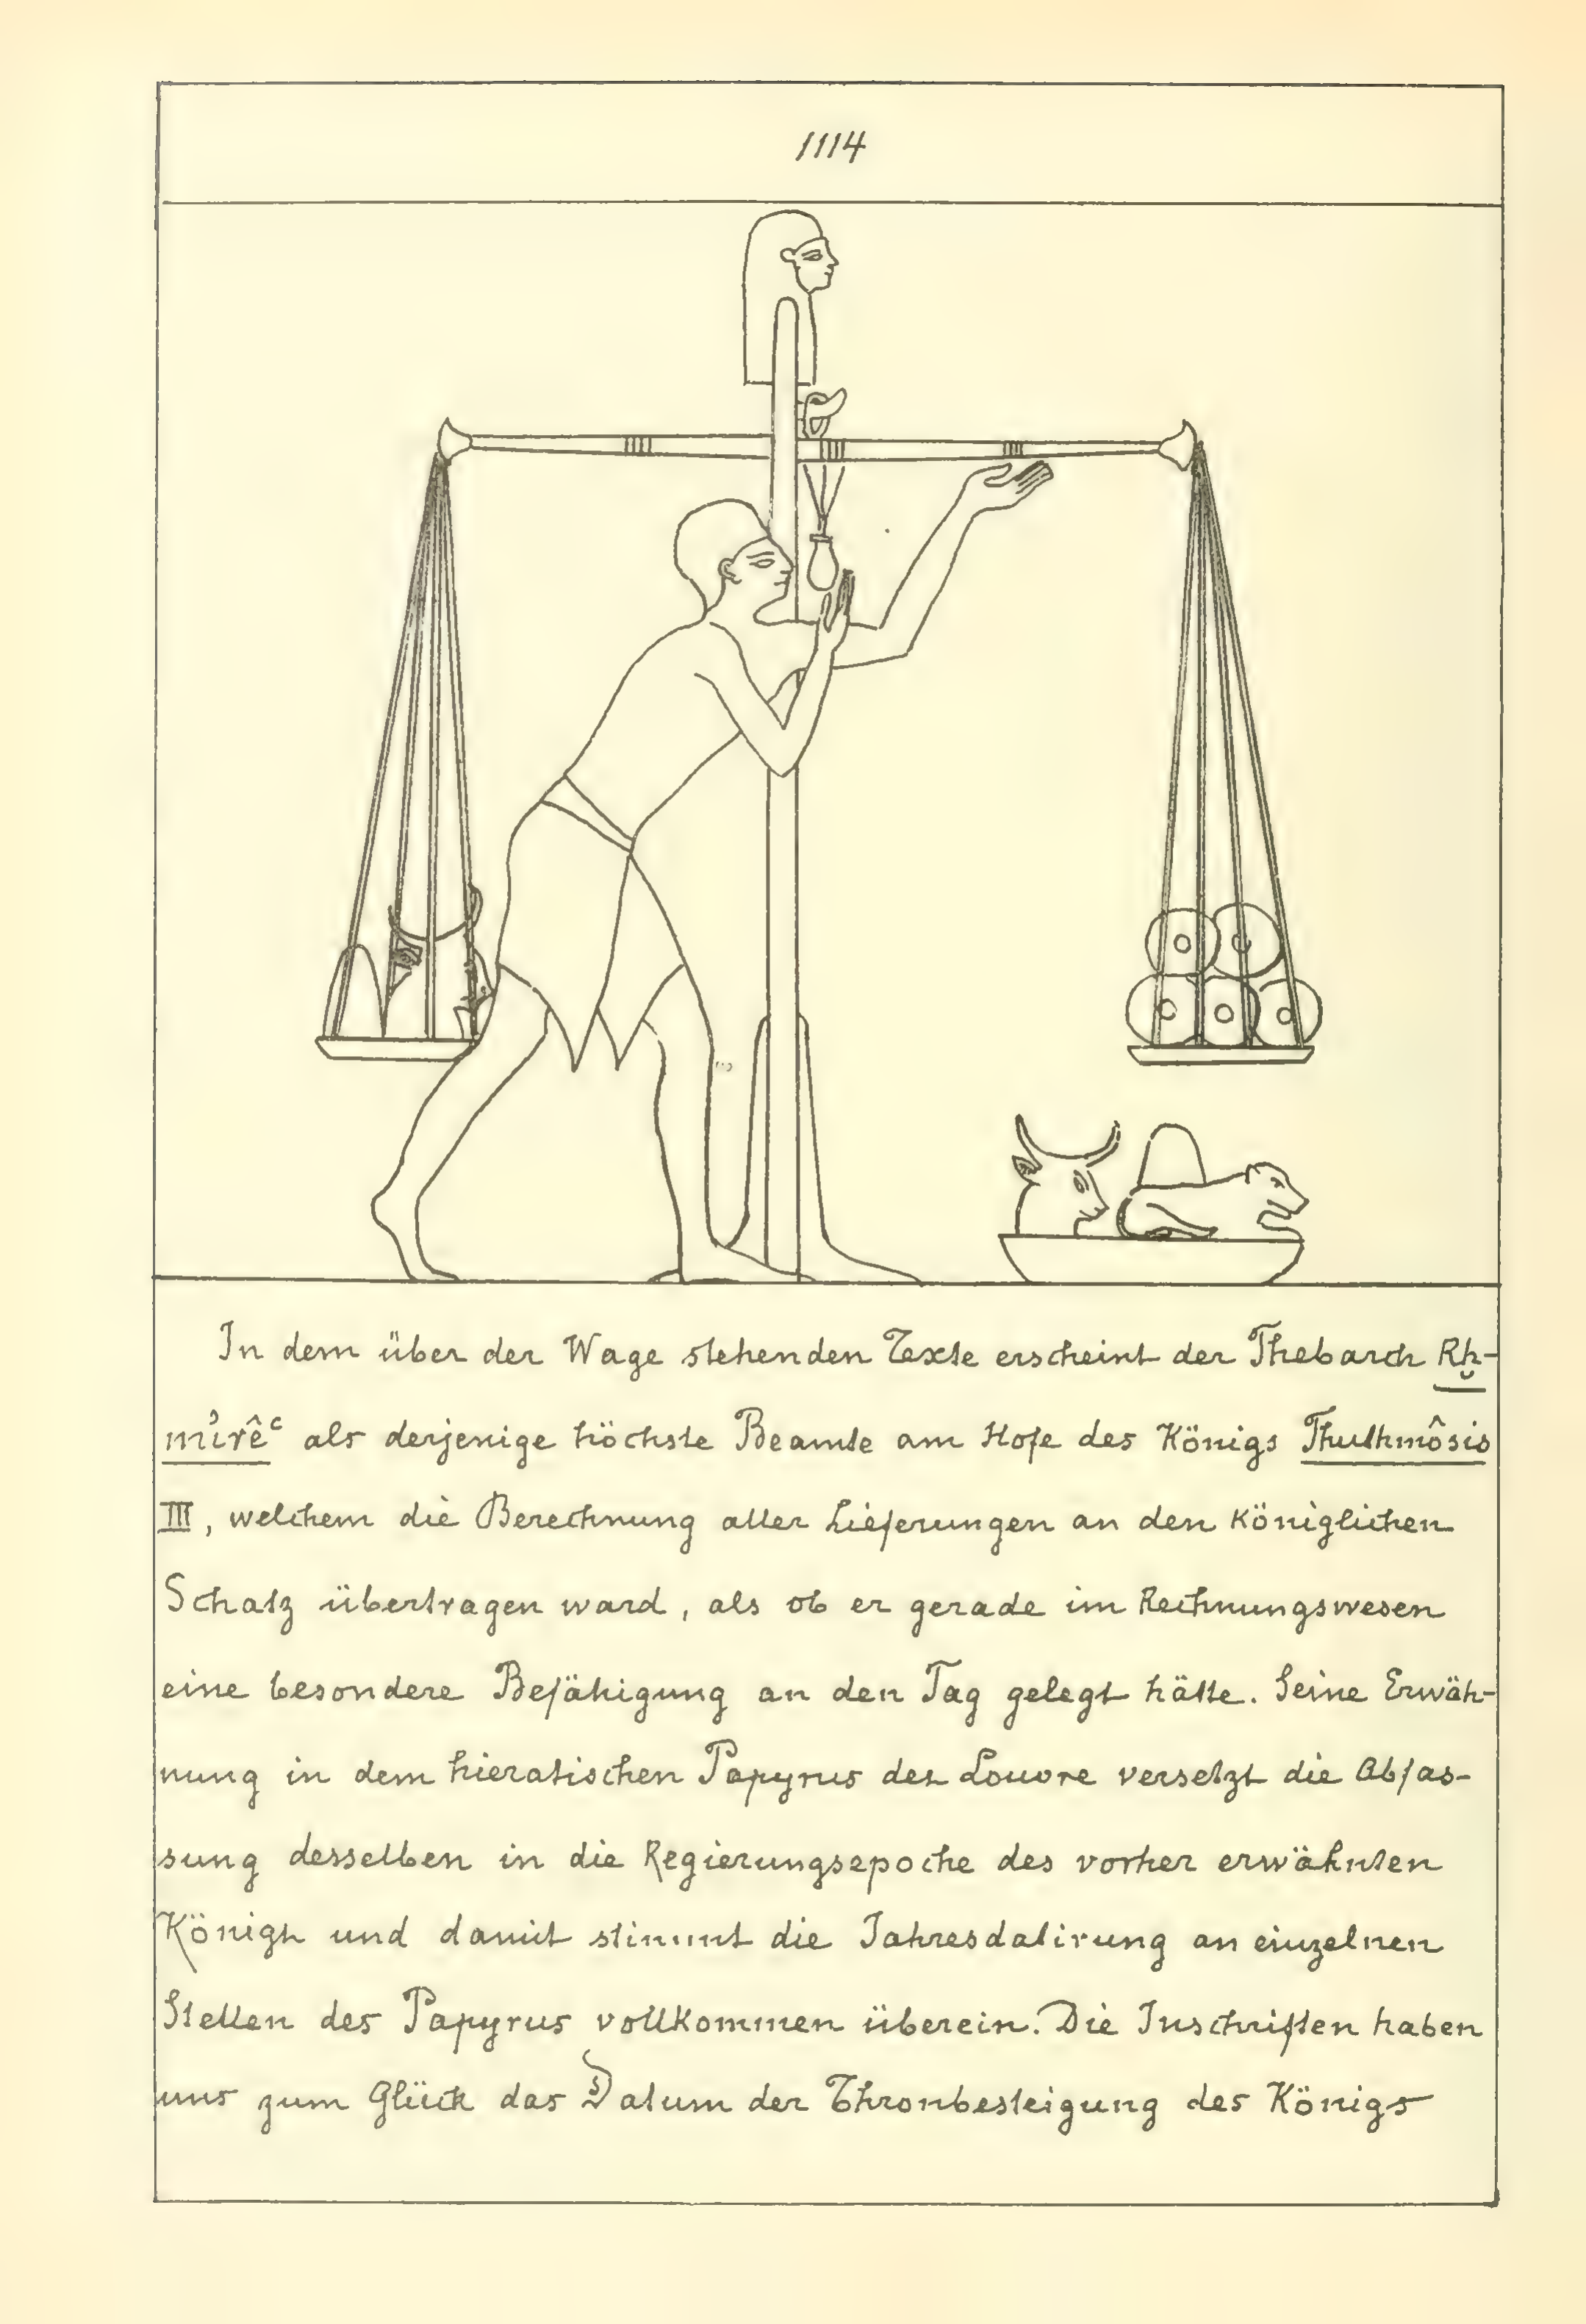 1114
In dem über der Wage stehenden Texte erscheint der Thebarch Rḫ-
mı͗rêᶜ als derjenige höchste Beamte am Hofe des Königs Thuthmôsis
III, welchem die Berechnung aller Lieferungen an den Königlichen
Schatz übertragen ward, als ob er gerade im Rechnungswesen
eine besondere Befähigung an den Tag gelegt hätte. Seine Erwäh-
nung in dem hieratischen Papyrus des Louvre versetzt die Abfas-
sung desselben in die Regierungsepoche des vorher erwähnten
Königs und damit stimmt die Jahresdatirung an einzelnen
Stellen des Papyrus vollkommen überein. Die Inschriften haben
uns zum Glück das Datum der Thronbesteigung des Königs